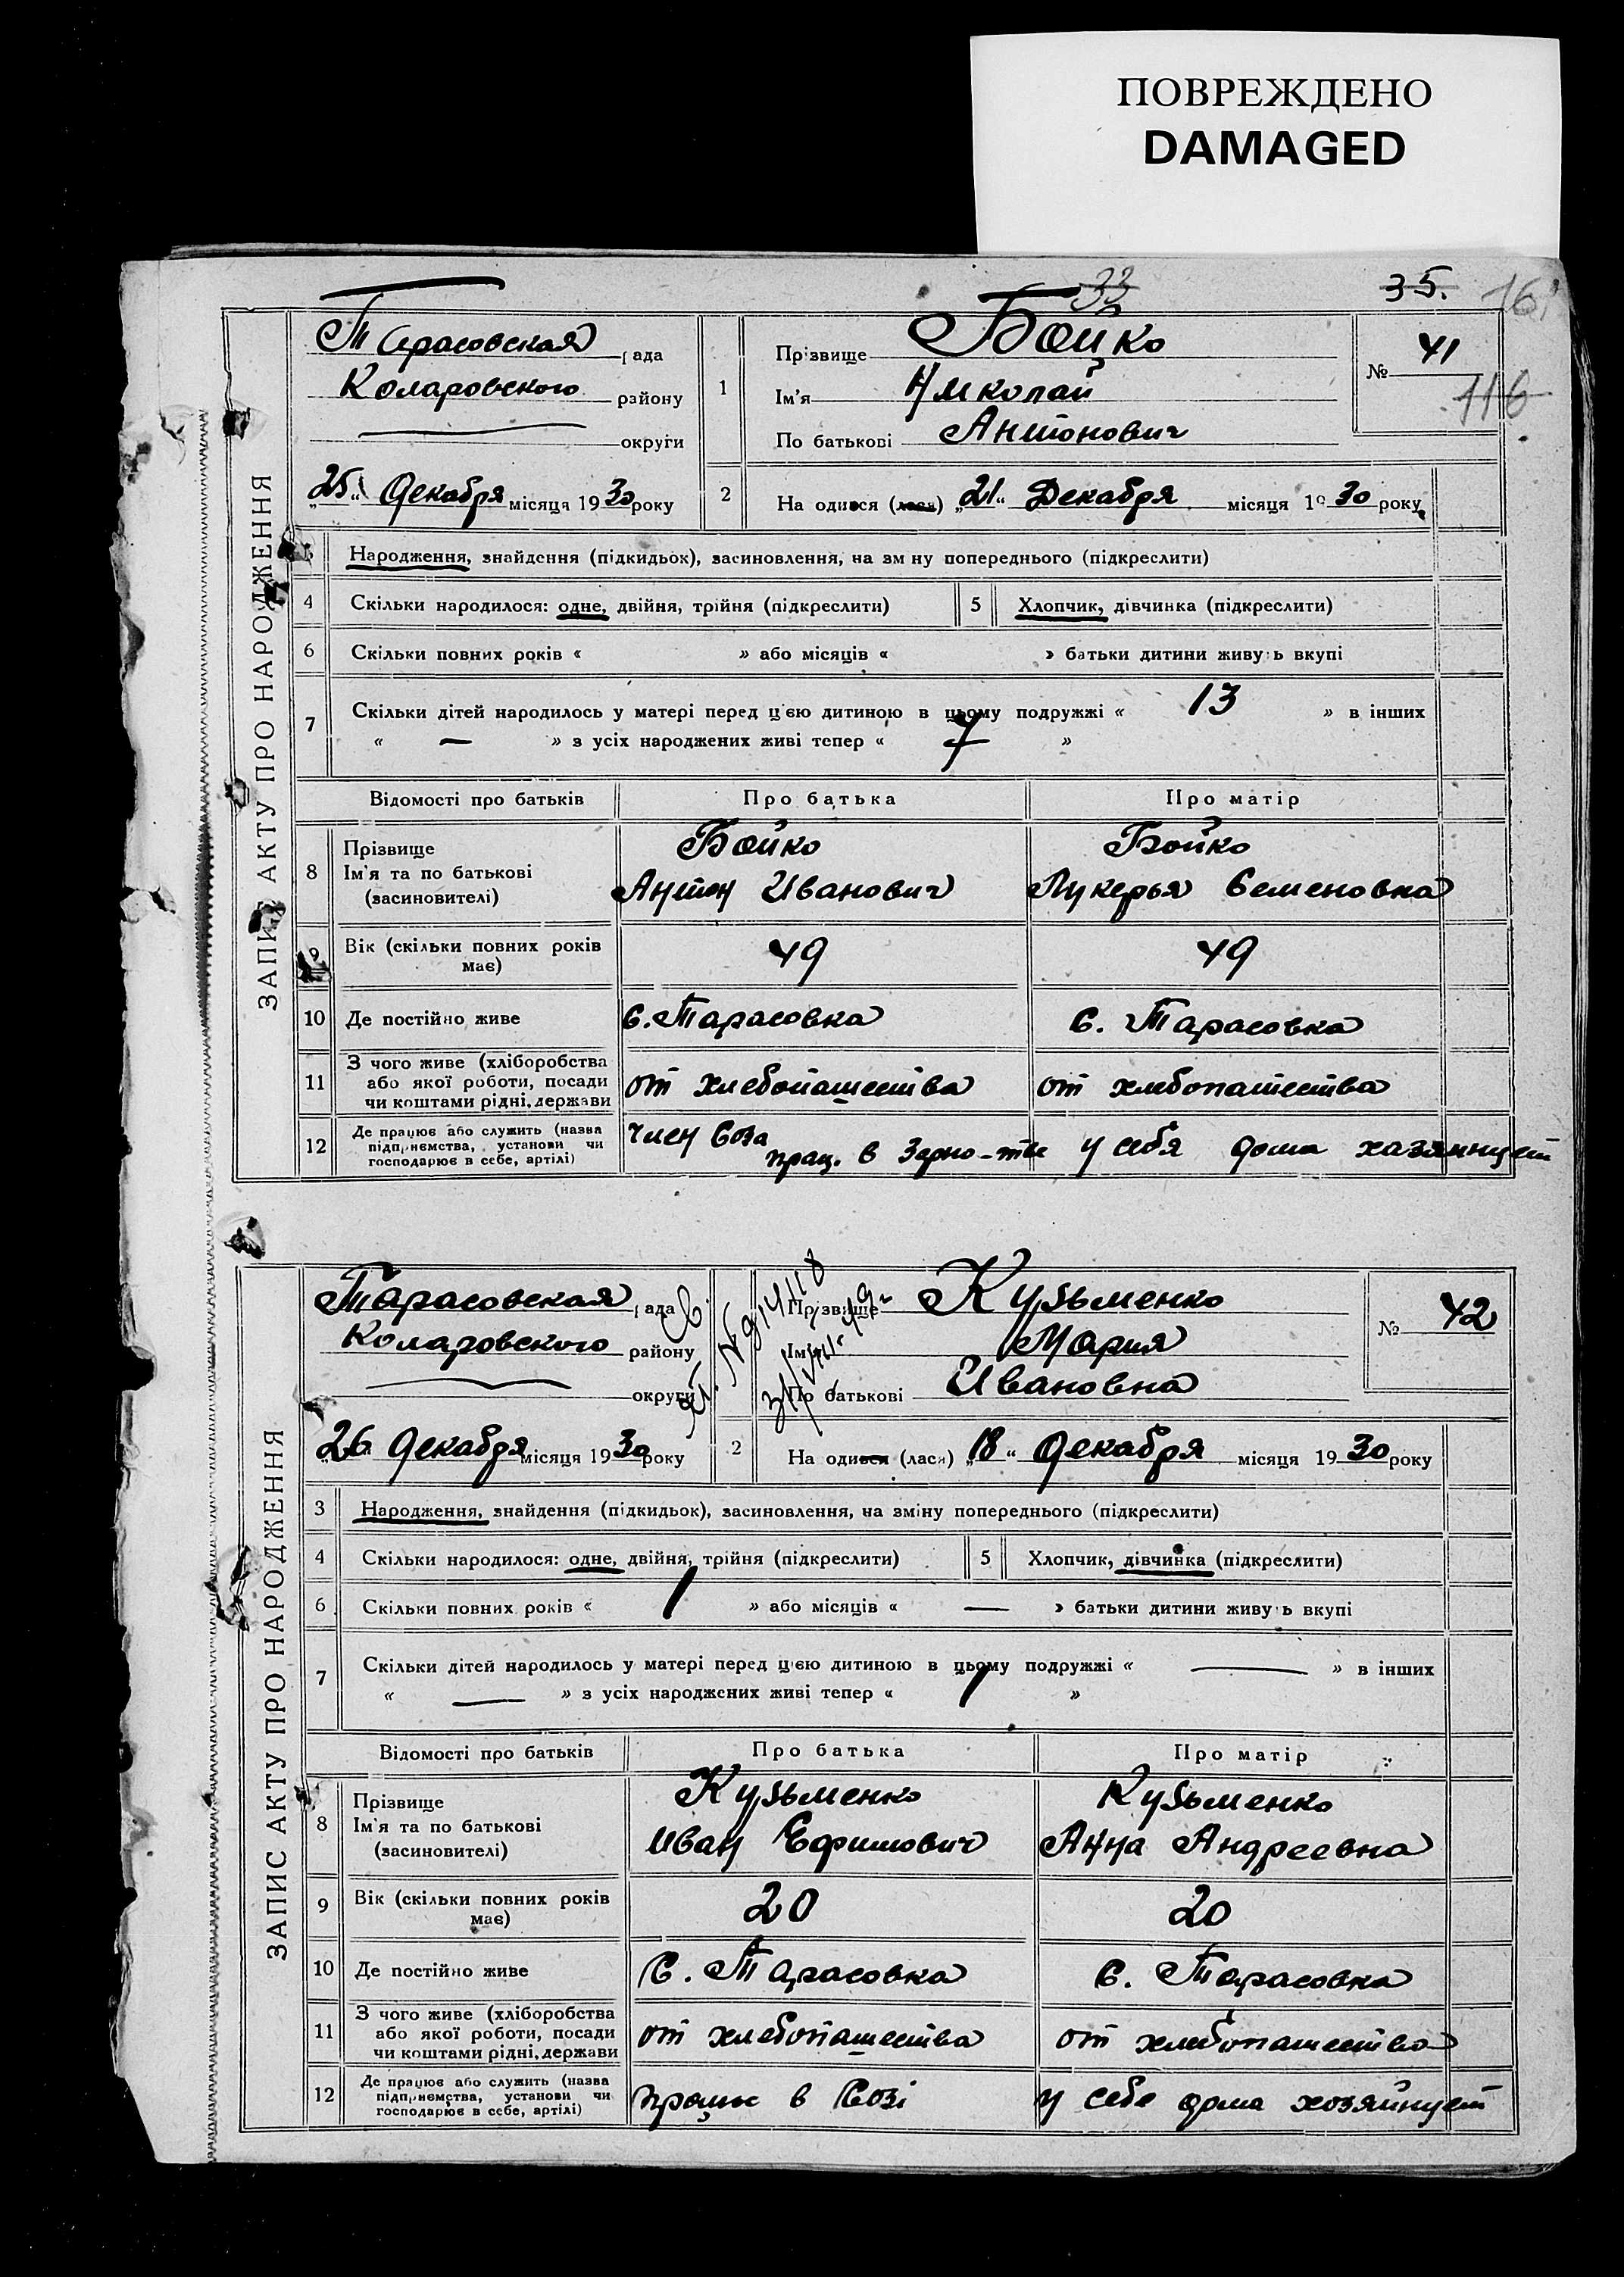 ПОВРЕЖДЕНО
DAMAGED
33
35.
116
ЗАПИС АКТУ ПРО НАРОДЖЕННЯ
Тарасовская рада
Коларовского району
округи
„25“ Декабря місяця 1930 року
1
Прізвище Бойко
Ім'я Николай
По батькові Антонович
№ 41
2
На одився (лася) „21“ Декабря місяця 1930 року
Народження, знайдення (підкидьок), засиновлення, на зм ну попереднього (підкреслити)
4 Скільки народилося: одне, двійня, трійня (підкреслити)
5 Хлопчик, дівчинка (підкреслити)
6 Скільки повних років « » або місяців « » батьки дитини живуть вкупі
7 Скільки дітей народилось у матері перед цією дитиною в цьому подружжі « 13 » в інших
« — » з усіх народжених живі тепер « 7 »
Відомості про батьків Про батька Про матір
8 Прізвище
Ім'я та по батькові
(засиновителі)
Бойко
Антон Иванович
Бойко
Лукерья Семеновна
9 Вік (скільки повних років
має)
49 49
10 Де постійно живе с. Тарасовка с. Тарасовка
11 З чого живе (хліборобства
або якої роботи, посади
чи коштами рідні, держави
от хлебопашества от хлебопашества
12 Де працює або служить (назва
підприємства, установи чи
господарює в себе, артілі)
член Соза
прац. в Зерно-тве
у себя дома хазяинует
ЗАПИС АКТУ ПРО НАРОДЖЕННЯ
Тарасовская рада
Коларовского району
округи
„26 Декабря місяця 1930 року
Прізвище Кузьменко
Ім'я Мария
По батькові Ивановна
№ 42
2
На одився (лася) „18“ Декабря місяця 1930 року
3 Народження, знайдення (підкидьок), засиновлення, на зміну попереднього (підкреслити)
4 Скільки народилося: одне, двійня, трійня (підкреслити)
5 Хлопчик, дівчинка (підкреслити)
6 Скільки повних років « 1 » або місяців « — » батьки дитини живуть вкупі
7 Скільки дітей народилось у матері перед цією дитиною в цьому подружжі « — » в інших
« — » з усіх народжених живі тепер « 1 »
Відомості про батьків Про батька Про матір
8 Прізвище
Ім'я та по батькові
(засиновителі)
Кузьменко
Иван Ефимович
Кузьменко
Анна Андреевна
9 Вік (скільки повних років
має)
20 20
10 Де постійно живе С. Тарасовка с. Тарасовка
11 З чого живе (хліборобства
або якої роботи, посади
чи коштами рідні, держави
от хлебопашества от хлебопашества
12 Де працює або служить (назва
підприємства, установи чи
господарює в себе, артілі)
працює в Созі
у себе дома хозяйнует